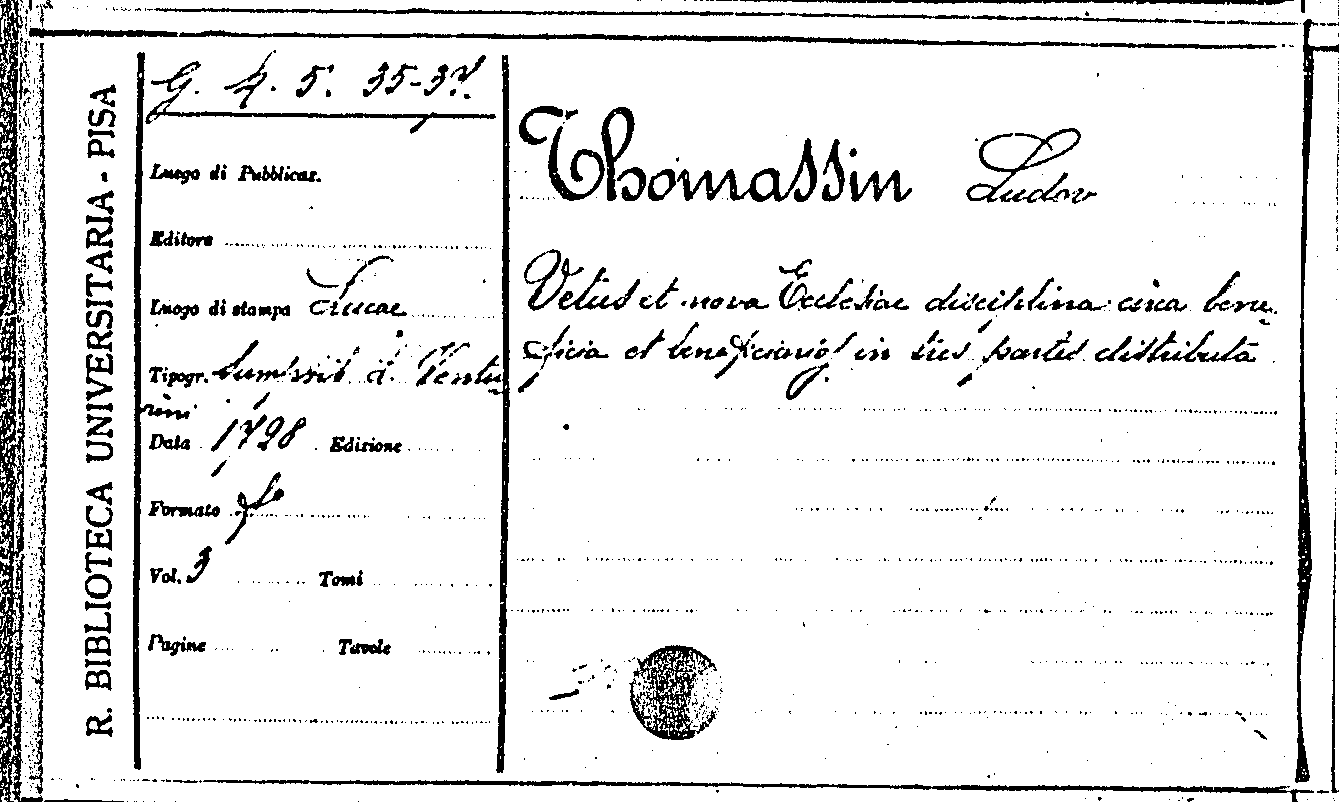 R. BIBLIOTECA UNIVERSITARIA - PISA
G. 4. 5. 35-37.
Luogo di Pubblicaz.
Editore
Luogo di stampa Lucae
Tipogr. sumpsit L. Ventu-
rini
Data 1728 Edizione
Formato fo
Vol. 3 Tomi
Pagine Tavole
Thomassin Ludov
Vetus et nova Ecclesiae disciplina circa bene-
ficia et beneficiarios in tres partes distributa